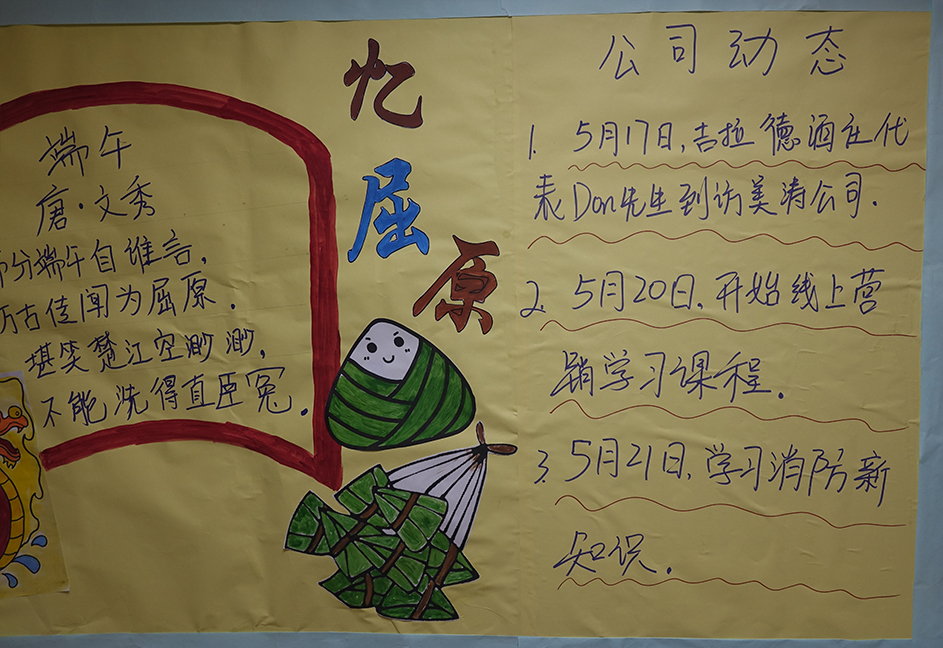 端午
唐·文秀
分端午自谁言,
万古传闻为屈原.
堪笑楚江空渺渺,
不能洗得直臣冤.
忆
屈
原
公司动态
1. 5月17日,吉拉德酒庄代
表Don先生到访美涛公司.
2. 5月20日,开始线上营
销学习课程.
3. 5月21日,学习消防新
知识.